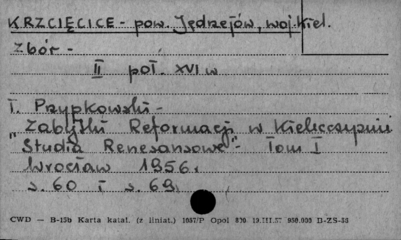 KRZCIĘCICE - pow. Jędrzejów, woj. Kiel.
Zbór -
II poł. XVI w
T. Przypkowski -
"Zabytki Reformacji w Kielecczyźnie
"Studia Renesansowe" - Tom I
Wrocław 1956.
s. 60 i s. 69.
CWD — B-15b Karta katal. (z liniat.) 1057/P Opol